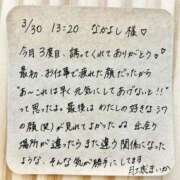 3/30 13:20 なかよし様♡
今月3度目、誘ってくれてありがとう♡
最初、お仕事で疲れた顔だったから
"あ〜これは早く元気にしてあげないと!!"
って思ったよ。最後は わたしの好きな37
の顔(笑)が見れてよかったな 出会う
場所が違ったらまた違う関係になった
ような、そんな気が勝手にしてます